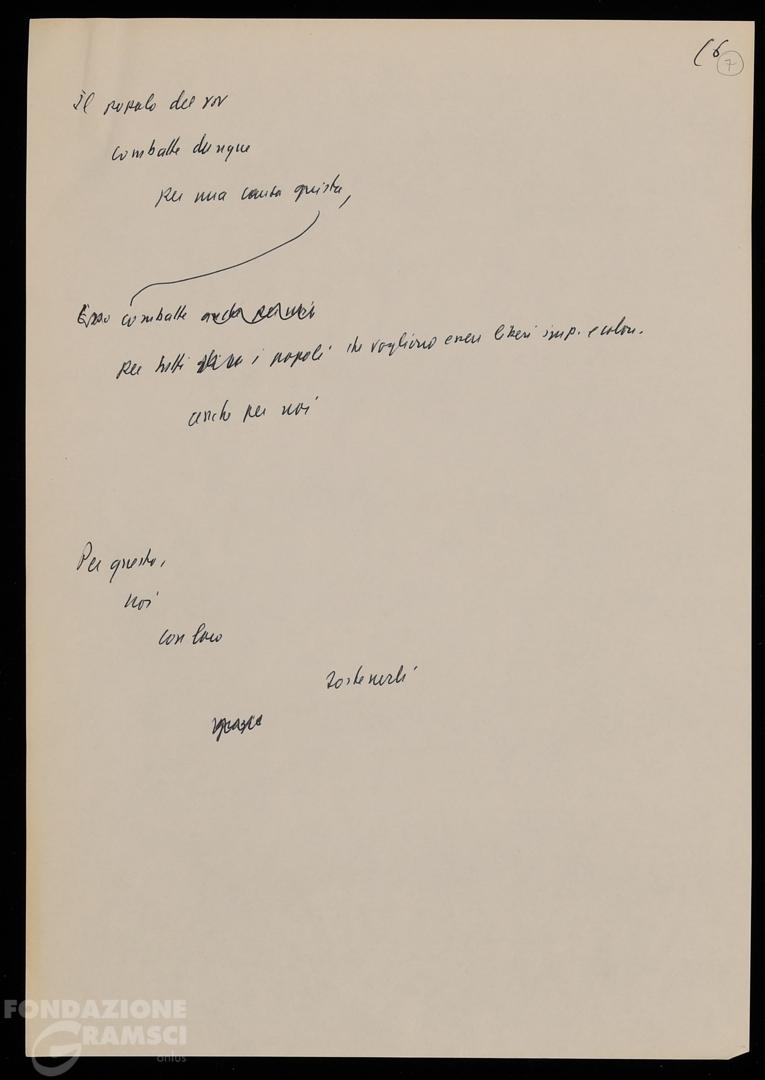 (6
7
Il popolo del vv
combatte dunque
per una causa giusta,
Esso combatte anche per noi
per tutti i popoli che vogliono essere liberi imp. e colon.
anche per noi
Per questo,
noi
con loro
sostenerli
FONDAZIONE
GRAMSCI
onlus